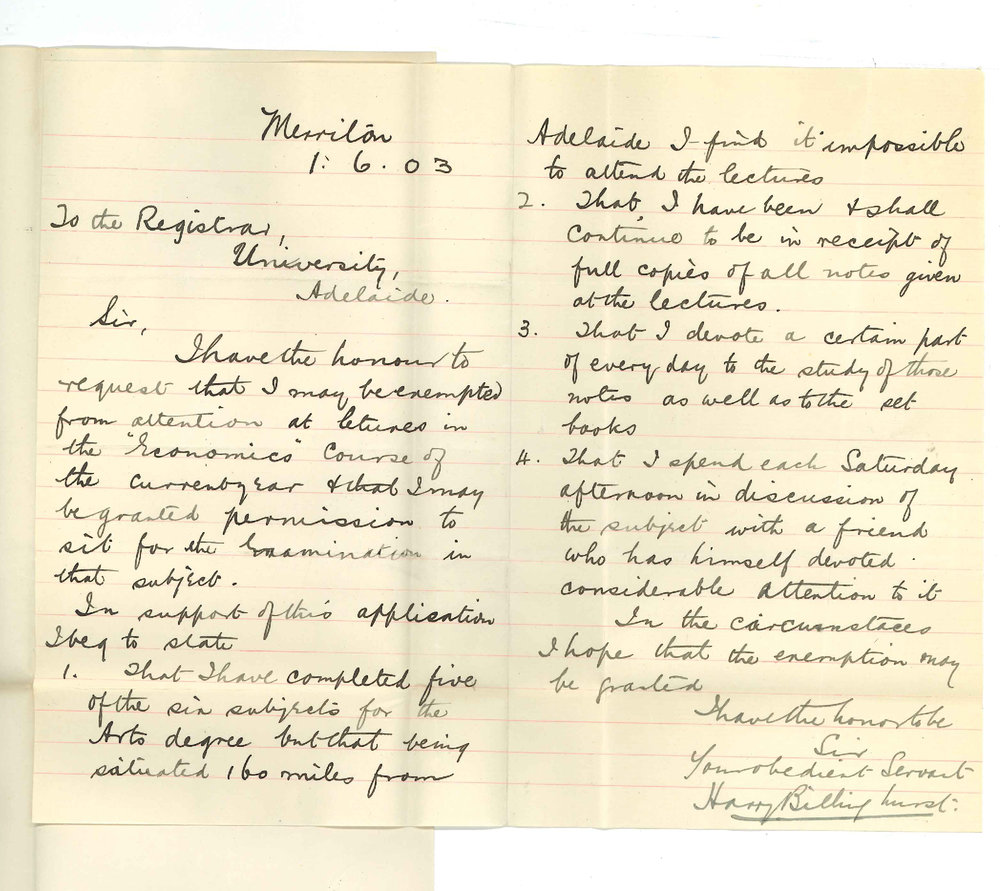 Merriton
1: 6. 03
To the Registrar,
University,
Adelaide.
Sir,
I have the honour to
request that I may be exempted
from attention at letures in
the "Economics" Course of
the current year & that I may
be granted permission to
sit for the Examination in
that subject.
In support of this application
I beg to state
1. That I have completed five
of the six subjects for the
Arts degree but that being
situated 160 miles from
Adelaide I find it impossible
to attend the lectures
2. That, I have been & shall
continue to be in receipt of
full copies of all notes given
at the lectures.
3. That I devote a certain part
of every day to the study of those
notes as well as to the set
books
4. That I spend each Saturday
afternoon in discussion of
the subject with a friend
who has himself devoted
considerable attention to it
In the circumstaces
I hope that the exemption may
be granted
I have the honor to be
Sir
Your obedient Servant
Harry Billinghurst.